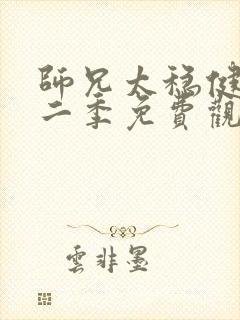 師兄太穩健第
二季免費觀
雲非墨